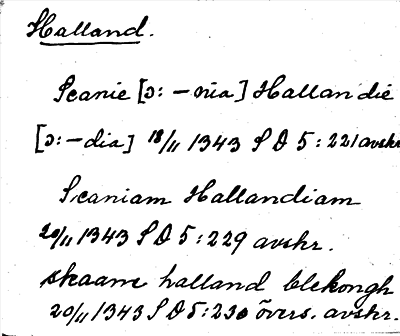 Halland.
Scanie [ɔ: -nia] Hallandie
[ɔ: -dia] 18/11 1343 SD 5:221 avskr.
Scaniam Hallandiam
20/11 1343 SD 5:229 avskr.
skaane halland blekongh
20/11 1343 SD 5:230 övers. avskr.